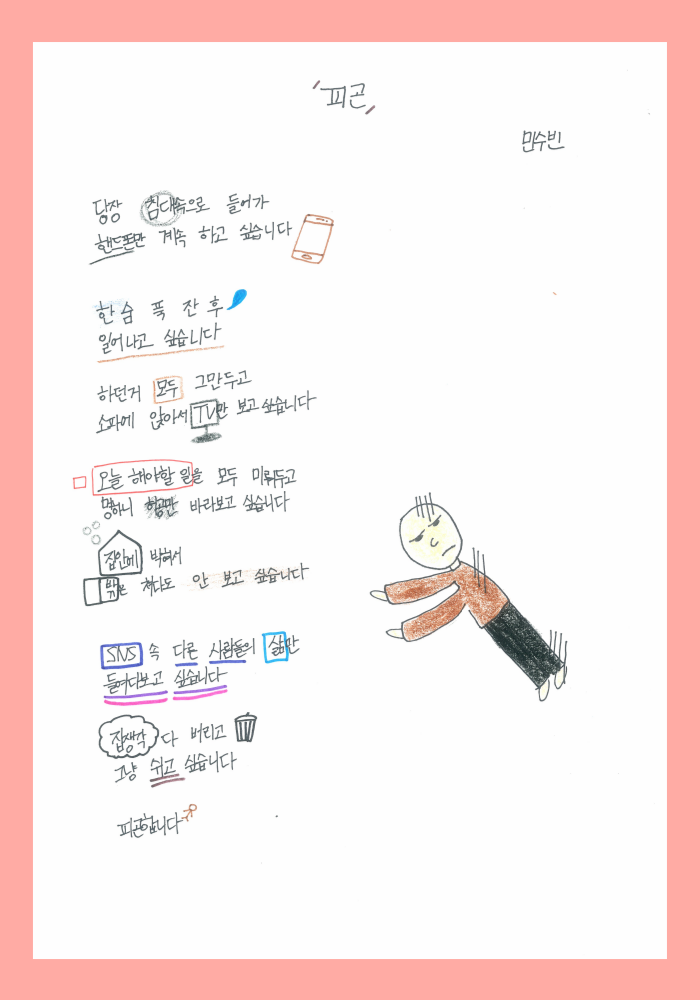 '피곤,
민수빈
당장 침대속으로 들어가
핸드폰만 계속 하고 싶습니다
한숨 푹 잔 후
일어나고 싶습니다
하던거 모두 그만두고
소파에 앉아서 TV만 보고 싶습니다
오늘 해야할 일을 모두 미뤄두고
멍하니 허공만 바라보고 싶습니다
집안에 박혀서
밖은 쳐다도 안 보고 싶습니다
SNS 속 다른 사람들의 삶만
들여다보고 싶습니다
잡생각 다 버리고
그냥 쉬고 싶습니다
피곤합니다